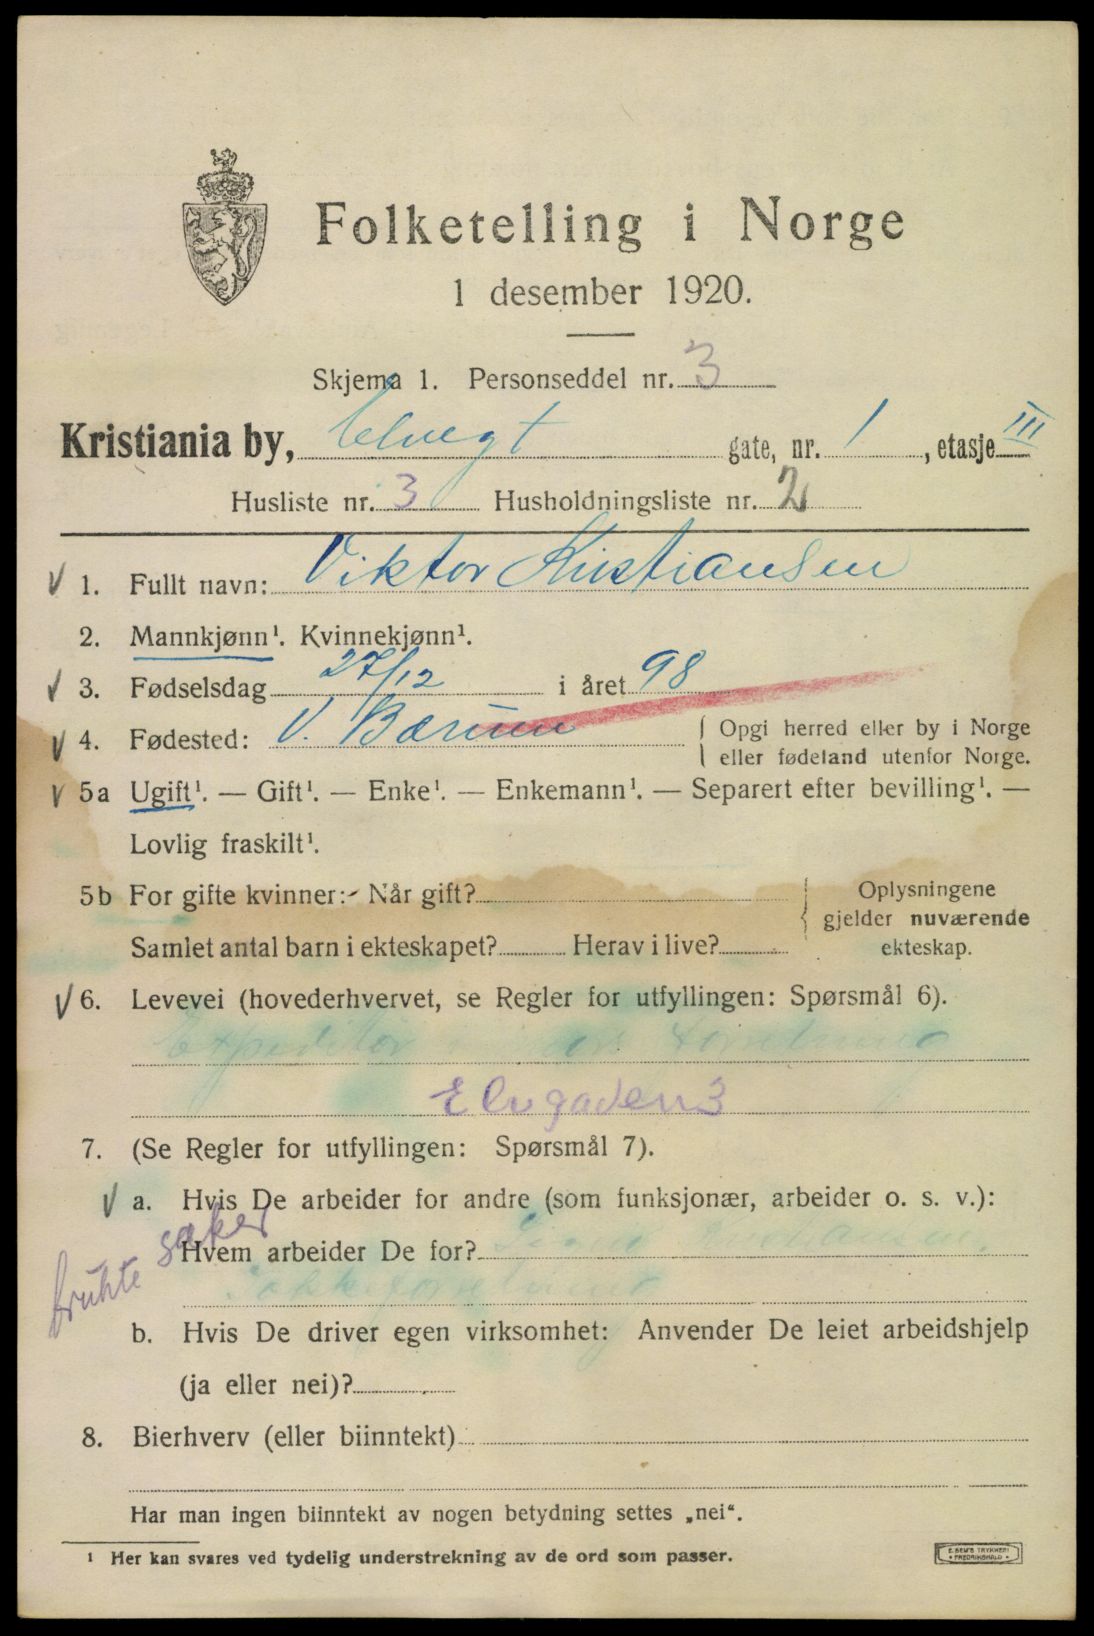 Folketelling i Norge
1 desember 1920.
Skjema 1. Personseddel nr. 3
Kristiania by, Elvegt gate, nr. 1, etasje III
Husliste nr. 3 Husholdningsliste nr. 2
√ 1. Fullt navn: Viktor Kristiansen
2. Mannkjønn¹. Kvinnekjønn¹.
√ 3. Fødselsdag 27/12 i året 98
√ 4. Fødested: V. Bærum { Opgi herred eller by i Norge
eller fødeland utenfor Norge.
√ 5a Ugift¹. — Gift¹. — Enke¹. — Enkemann¹. — Separert efter bevilling¹. —
Lovlig fraskilt¹.
5b For gifte kvinner: Når gift?
Samlet antal barn i ekteskapet? Herav i live?
{ Oplysningene
gjelder nuværende
ekteskap.
√ 6. Levevei (hovederhvervet, se Regler for utfyllingen: Spørsmål 6).
Expeditør forretning
Elvgaden 3
7. (Se Regler for utfyllingen: Spørsmål 7).
√ a. Hvis De arbeider for andre (som funksjonær, arbeider o. s. v.):
Hvem arbeider De for?
frukte saker
b. Hvis De driver egen virksomhet: Anvender De leiet arbeidshjelp
(ja eller nei)?
8. Bierhverv (eller biinntekt)
Har man ingen biinntekt av nogen betydning settes „nei“.
¹ Her kan svares ved tydelig understrekning av de ord som passer.
E. SEM'S TRYKKERI
• FREDRIKSHALD •